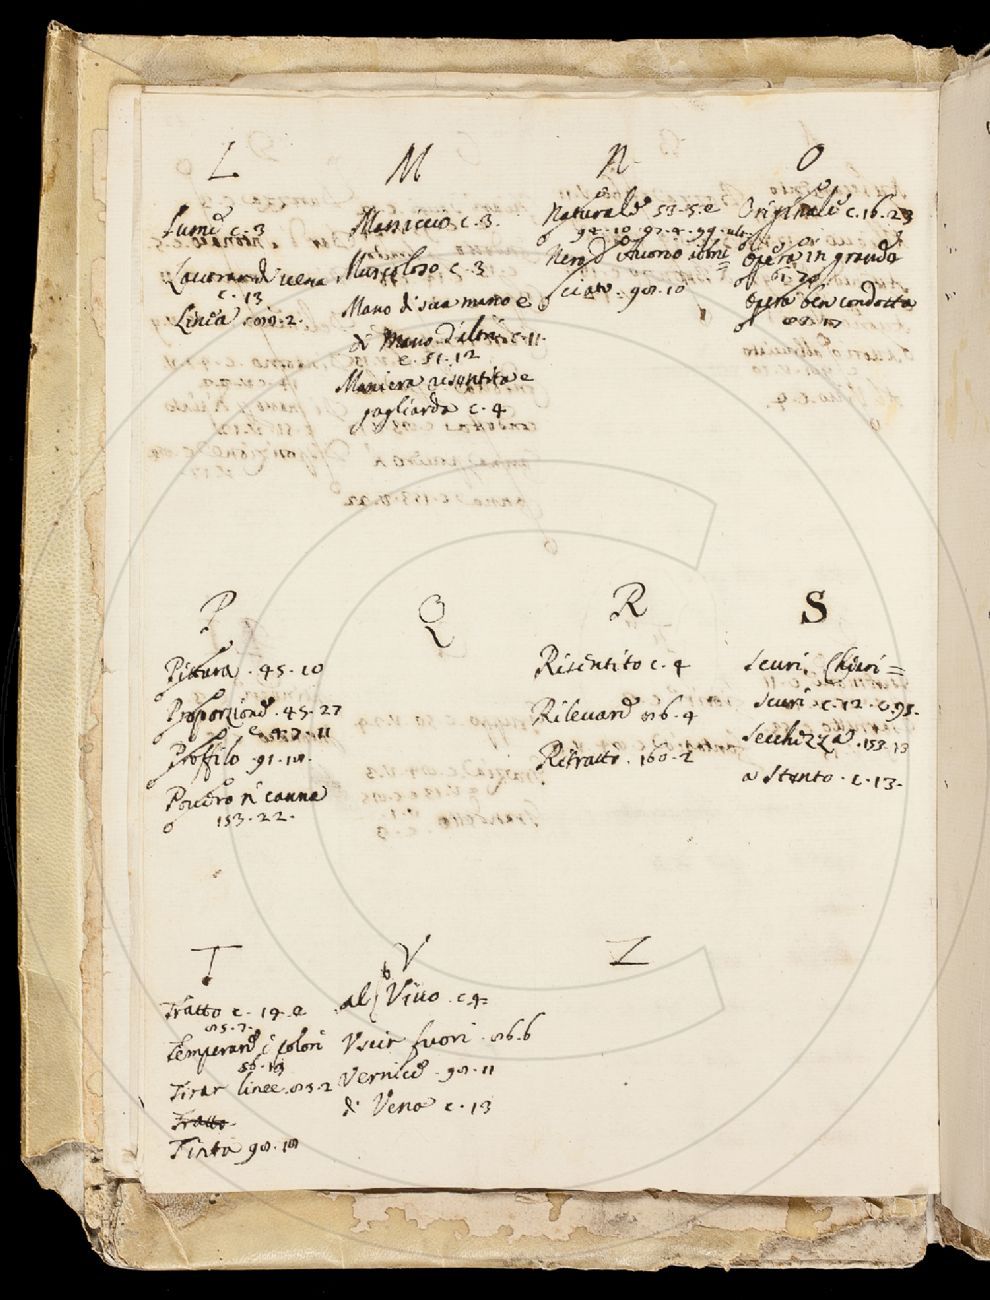 L
Lume c. 3
Lauorar di uena
c. 13
Linea
M
Massiccio c. 3.
Muscoloso. c. 3
Mano di sua mano e
di Mano d'altri c. 11.
c. 51. 12
Maniera risentita e
gagliarda c. 4
N
Naturale 53. 5. e
Nero d'Auorio abbru=
sciato. 98. 10
O
Originale c. 16. 23
opera in grande
61. 20
opera ben condotta
P
Pittura. 45. 10
Proporzione. 45. 27
Proffilo. 91. 18.
Pouero n' canna
153. 22.
Q
R
Risentito c. 4
Rileuare 86. 4
Ritratto. 160. 2
S
Scuri, Chiari=
scuri c. 12. 95.
Secchezza. 153. 13
a Stento. c. 13.
T
Tratto c. 14. e
85. 7.
Temperare i colori
56. 13
Tirar linee. 83. 2
Tratto
Tinta 98. 18
V
al Viuo. c 4=
Vscir fuori. 86. 6
Vernice. 98. 11
di Vena c. 13
Z